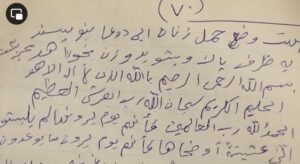 (٧٠)
وضع حمل زنان این دعا بنویسند
به ظرف پاک و بشوید وزن بخورد
بسم الله الرحمن الرحیم بالله الذی لا اله الا هو
الحلیم الکریم سبحان الله رب العرش العظیم
الحمد لله رب العالمین کأنهم یوم یرونها لم یلبثوا
الا عشیة أو ضحاها کأنهم یوم یرون ما یوعدون